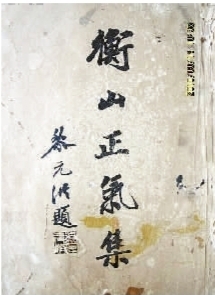 衡山正氣集
黎元洪題